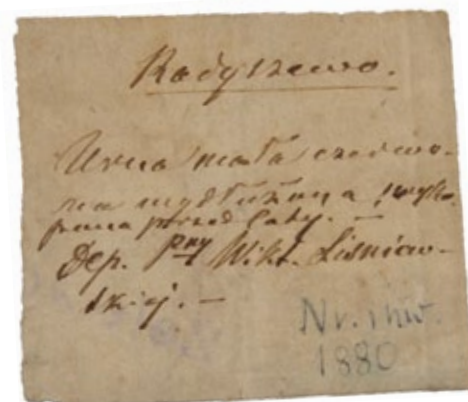 Radyszewo.
Urna mała czerwo-
na wydłużona, wyko-
pana przed laty. —
Dep. pny Wikt. Liśniew-
skiej. —
Nr. inw.
1880